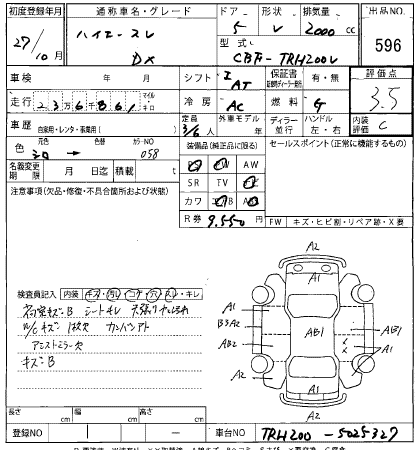 初度登録年月 通称車名・グレード ドア 形状 排気量 出品NO.
27/10月 ハイエースV 5 V 2000cc 596
DX 型式 CBF-TRH200V
車検 年 月 シフト I AT 保証書 有・無 評価点
走行 236千861 マイル キロ 冷房 AC 燃料 G 3.5
車歴 自家用・レンタ・事業用( ) 定員 3/6人 外車モデル 年 ディーラー 並行 ハンドル 左・右 内装評価 C
色 元色 シロ 色替 カラーNO 058 装備品(純正品に限る) セールスポイント(正常に機能するもの)
名義変更期限 月 日迄 積載 t PS PW AW
注意事項(欠品・修復・不具合箇所および状態) SR TV ナビ
カワ エアB AB
R券 9,550 FW キズ・ヒビ割・リペア跡・X要
検査員記入 内装 キズ・汚レ・コゲ・穴・切レ・キレ
荷室キズB シートキレ 天張りヤレヨゴレ
W/Cキズ 1枚欠 カンバンアト
アシストミラー欠
キズB
A2
A1
A1
B3A2
AB2
A2
AB1
AB1
A1
A2
A1
A2
長さ cm 幅 cm 高さ cm
登録NO 車台NO TRH200-5025327